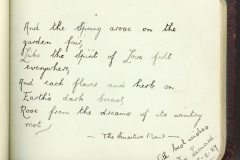 And the Spring arose on the
garden fair,
Like the Spirit of Love felt
everywhere;
And each flower and herb on
Earth's dark breast,
Rose from the dreams of its wintry
rest.
- The Sensitive Plant -
With best wishes